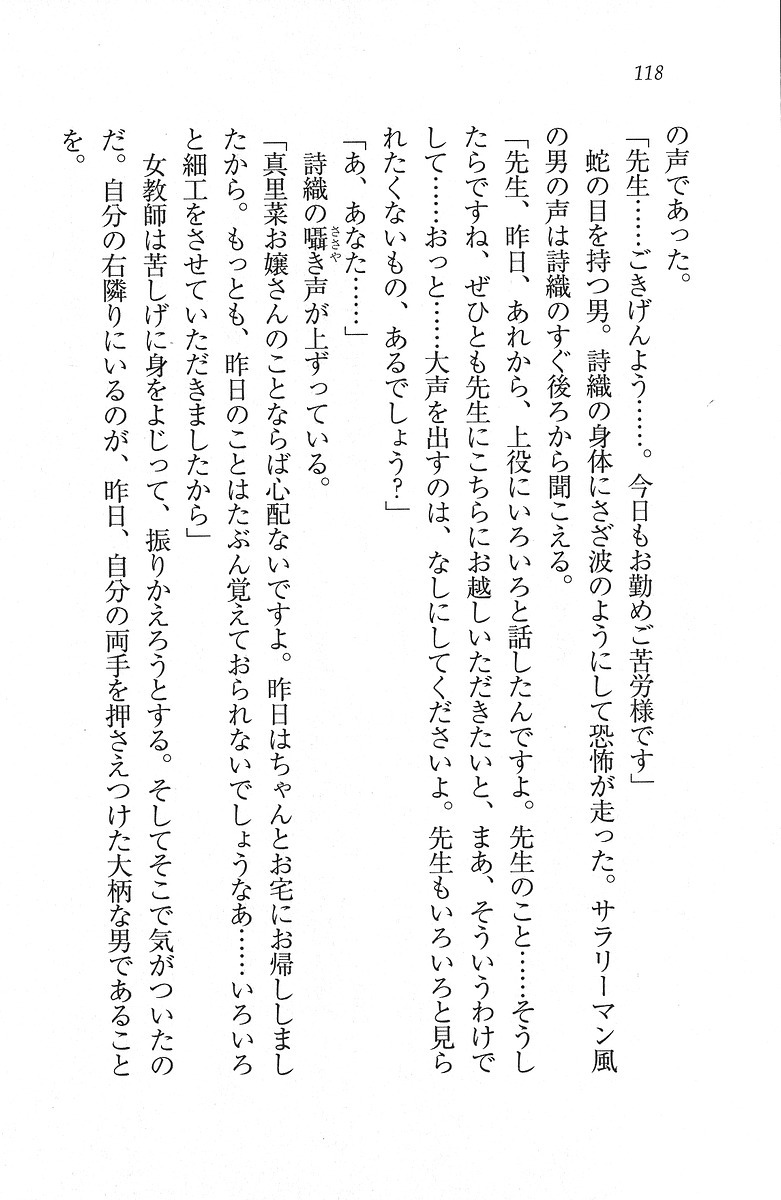 118
の声であった。
「先生……ごきげんよう……。今日もお勤めご苦労様です」
蛇の目を持つ男。詩織の身体にさざ波のようにして恐怖が走った。サラリーマン風
の男の声は詩織のすぐ後ろから聞こえる。
「先生、昨日、あれから、上役にいろいろと話したんですよ。先生のこと……そうし
たらですね、ぜひとも先生にこちらにお越しいただきたいと、まあ、そういうわけで
して……おっと……大声を出すのは、なしにしてくださいよ。先生もいろいろと見ら
れたくないもの、あるでしょう?」
「あ、あなた……」
詩織の囁き声が上ずっている。
ささや
「真里菜お嬢さんのことならば心配ないですよ。昨日はちゃんとお宅にお帰ししまし
たから。もっとも、昨日のことはたぶん覚えておられないでしょうなあ……いろいろ
と細工をさせていただきましたから」
女教師は苦しげに身をよじって、振りかえろうとする。そしてそこで気がついたの
だ。自分の右隣りにいるのが、昨日、自分の両手を押さえつけた大柄な男であること
を。